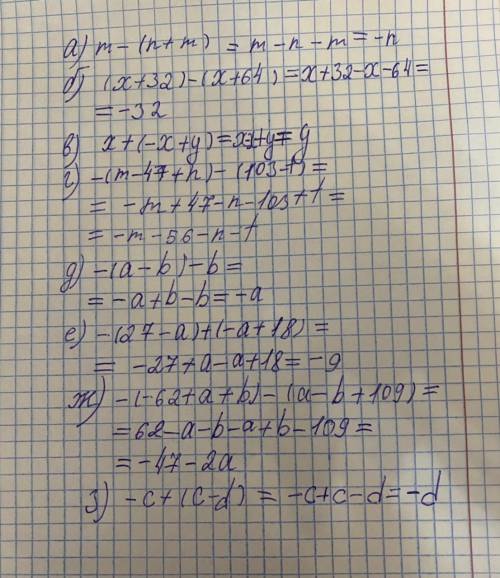 а) m-(n+m) = m-n-m=-n
б) (x+32)-(x+64)=x+32-x-64=
=-32
в) x+(-x+y)=x-x+y=y
г) -(m-47+n)-(103-t)=
= -m+47-n-103+t=
=-m-56-n-t
д) -(a-b)-b=
=-a+b-b=-a
е) -(27-a)+(-a+18)=
= -27+a-a+18=-9
ж) -(-62+a+b)-(a-b+109)=
=62-a-b-a+b-109=
=-47-2a
з) -c+(c-d) = -c+c-d=-d